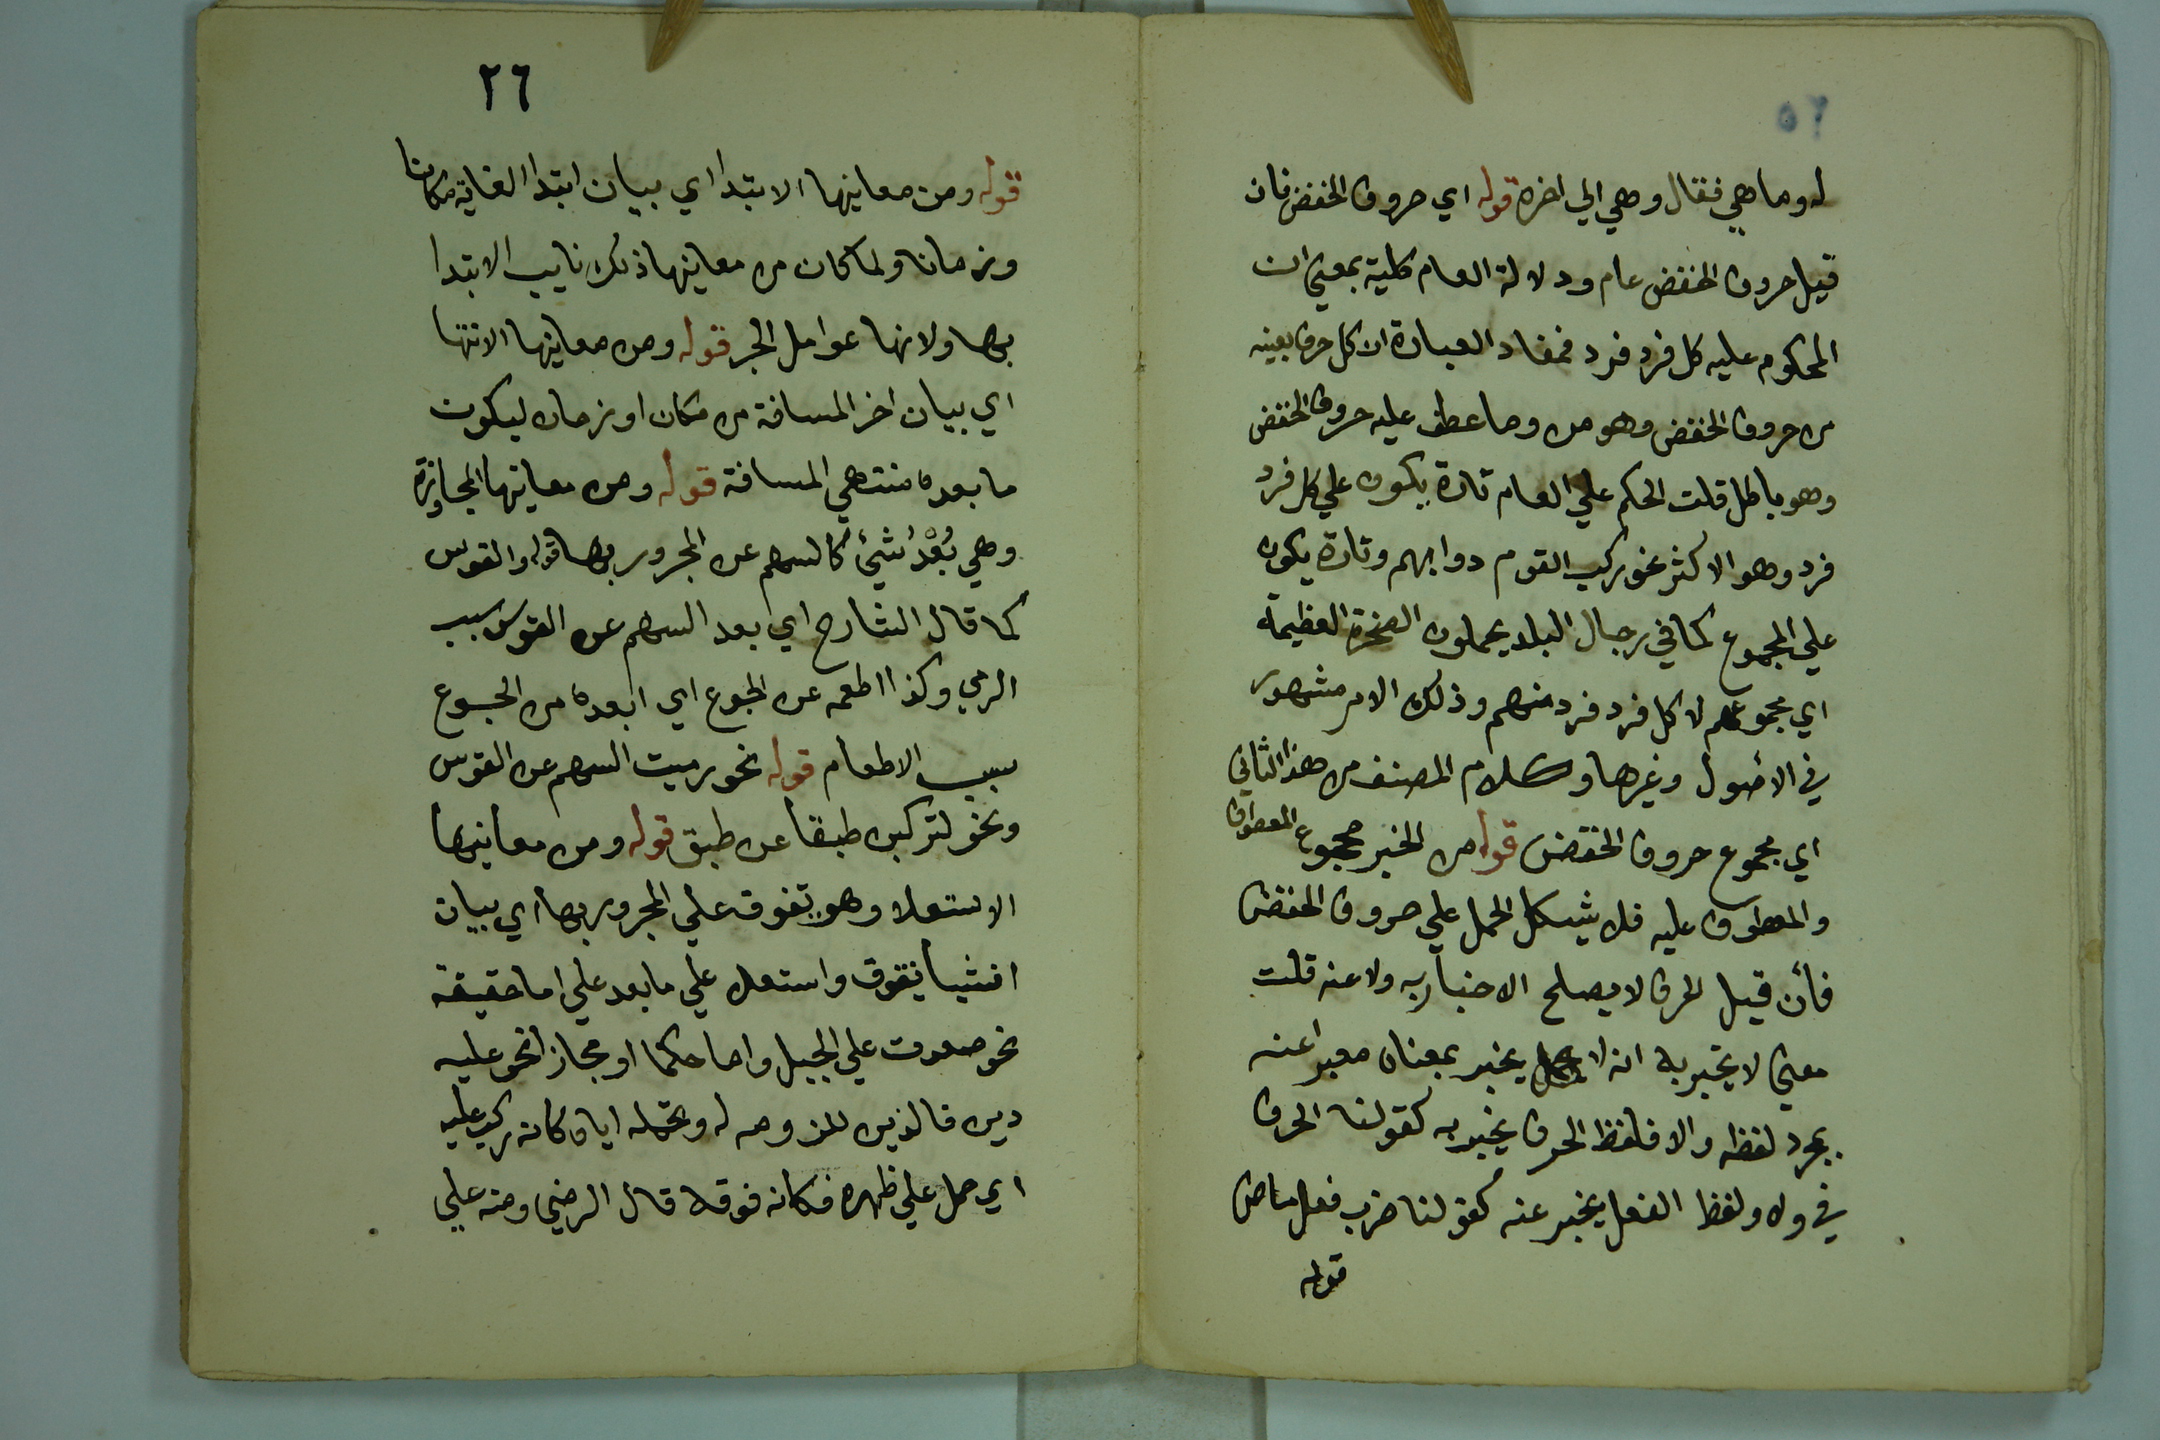 ٢٥
له وما هي فقال وهي الي اخره قوله اي حروف الخفض فان
قيل حروف الخفض عام ودلالة العام كلية بمعني ان
المحكوم عليه كل فرد فرد فمفاد العبارة ان كل حرف بعينه
من حروف الخفض وهو من وما عطف عليه حروف الخفض
وهو باطل قلت الحكم علي العام تارة يكون علي كل فرد
فرد وهو الاكثر نحو ركب القوم دوابهم وتارة يكون
علي المجموع كما في رجال البلد يحملون الصخرة العظيمة
اي مجموعهم لا كل فرد فرد منهم وذلك الامر مشهور
في الاصول وغيرها وكلام المصنف من هذا الثاني
اي مجموع حروف الخفض قوله من الخبر مجموع المعطوف
والمعطوف عليه فلا يشكل الحمل علي حروف الخفض
فأن قيل الحرف لا يصلح الاخبار به ولا عنه قلت
معني لا يخبر به انه لا يخبر بمعناه معبرا عنه
بمجرد لفظه والا فلفظ الحرف يخبر به كقولنا الحرف
في ولا ولفظ الفعل يخبر عنه كقولنا ضرب فعل ماض
قوله
٢٦
قوله ومن معانيها الابتدا اي بيان ابتدا الغاية مكانا
وزمانا ولما كان من معانيها ذلك نايب الابتدا
بها ولانها عوامل الجر قوله ومن معانيها الانتها
اي بيان اخر المسافة من مكان او زمان ليكون
ما بعده منتهي المسافة قوله ومن معانيها المجاوزة
وهي بُعْدُ شيئ كالسهم عن المجرور بها قوله والقوس
كما قال الشارح اي بعد السهم عن القوس بسبب
الرمي وكذا اطعمه عن الجوع اي ابعده من الجوع
بسبب الاطعام قوله نحو رميت السهم عن القوس
ونحو لتركبن طبقا عن طبق قوله ومن معانيها
الاستعلا وهو تفوق علي المجرور بها اي بيان
ان شيا تفوق واستعلا علي ما بعد علي اما حقيقة
نحو صعدت علي الجبل واما حكما او مجازا نحو عليه
دين فالدين للزومه له وتحمله اياه كانه ركب عليه
اي حمل علي ظهره فكانه فوقه قال الرضي ومنه علي